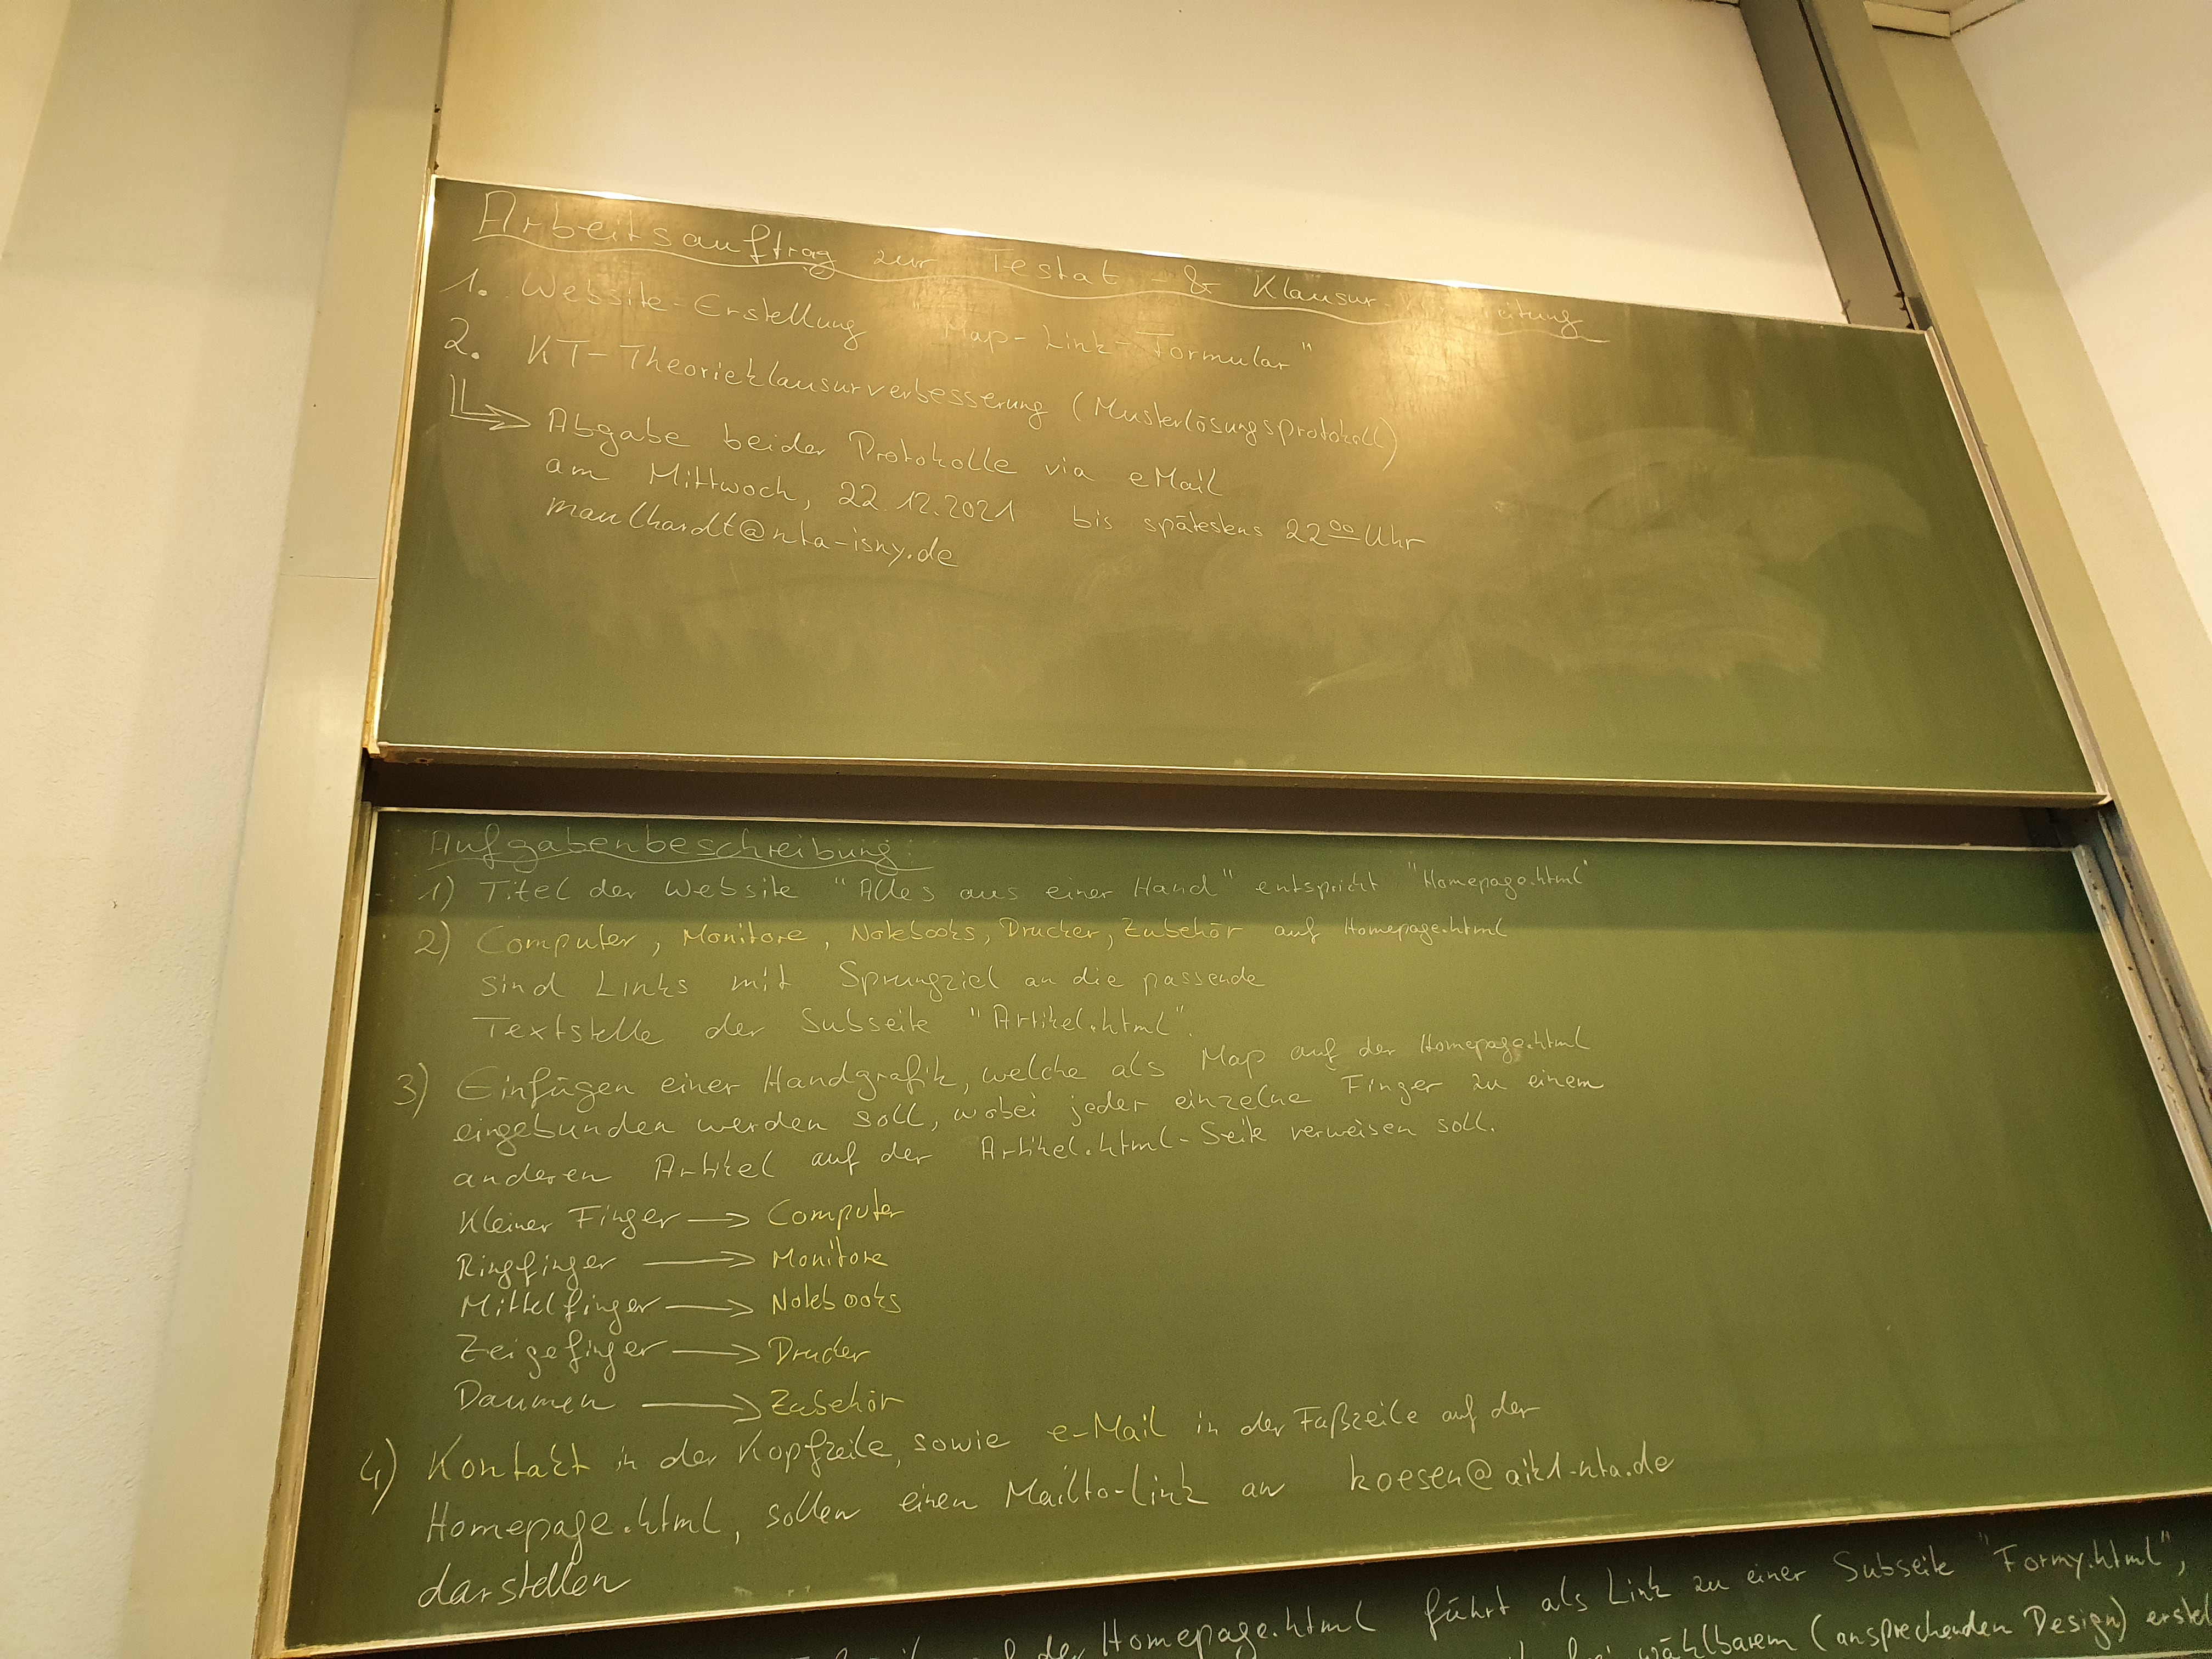 Arbeitsauftrag zur Testat- & Klausur
1. Website-Erstellung "Map-Link-Formular"
2. KT-Theorieklausurverbesserung (Musterlösungsprotokoll)
Abgabe beider Protokolle via eMail
am Mittwoch, 22.12.2021 bis spätestens 22 00 Uhr
maulhardt@nta-isny.de
Aufgabenbeschreibung:
1) Titel der Website "Alles aus einer Hand" entspricht "Homepage.html"
2) Computer, Monitore, Notebooks, Drucker, Zubehör auf Homepage.html
sind Links mit Sprungziel an die passende
Textstelle der Subseite "Artikel.html".
3) Einfügen einer Handgrafik, welche als Map auf der Homepage.html
eingebunden werden soll, wobei jeder einzelne Finger zu einem
anderen Artikel auf der Artikel.html-Seite verweisen soll.
Kleiner Finger → Computer
Ringfinger → Monitore
Mittelfinger → Notebooks
Zeigefinger → Drucker
Daumen → Zubehör
4) Kontakt in der Kopfzeile, sowie e-Mail in der Fußzeile auf der
Homepage.html, sollen einen Mailto-Link an koesen@aik1-nta.de
darstellen
der Homepage.html führt als Link zu einer Subseite "Formy.html",
wählbarem (ansprechenden Design)